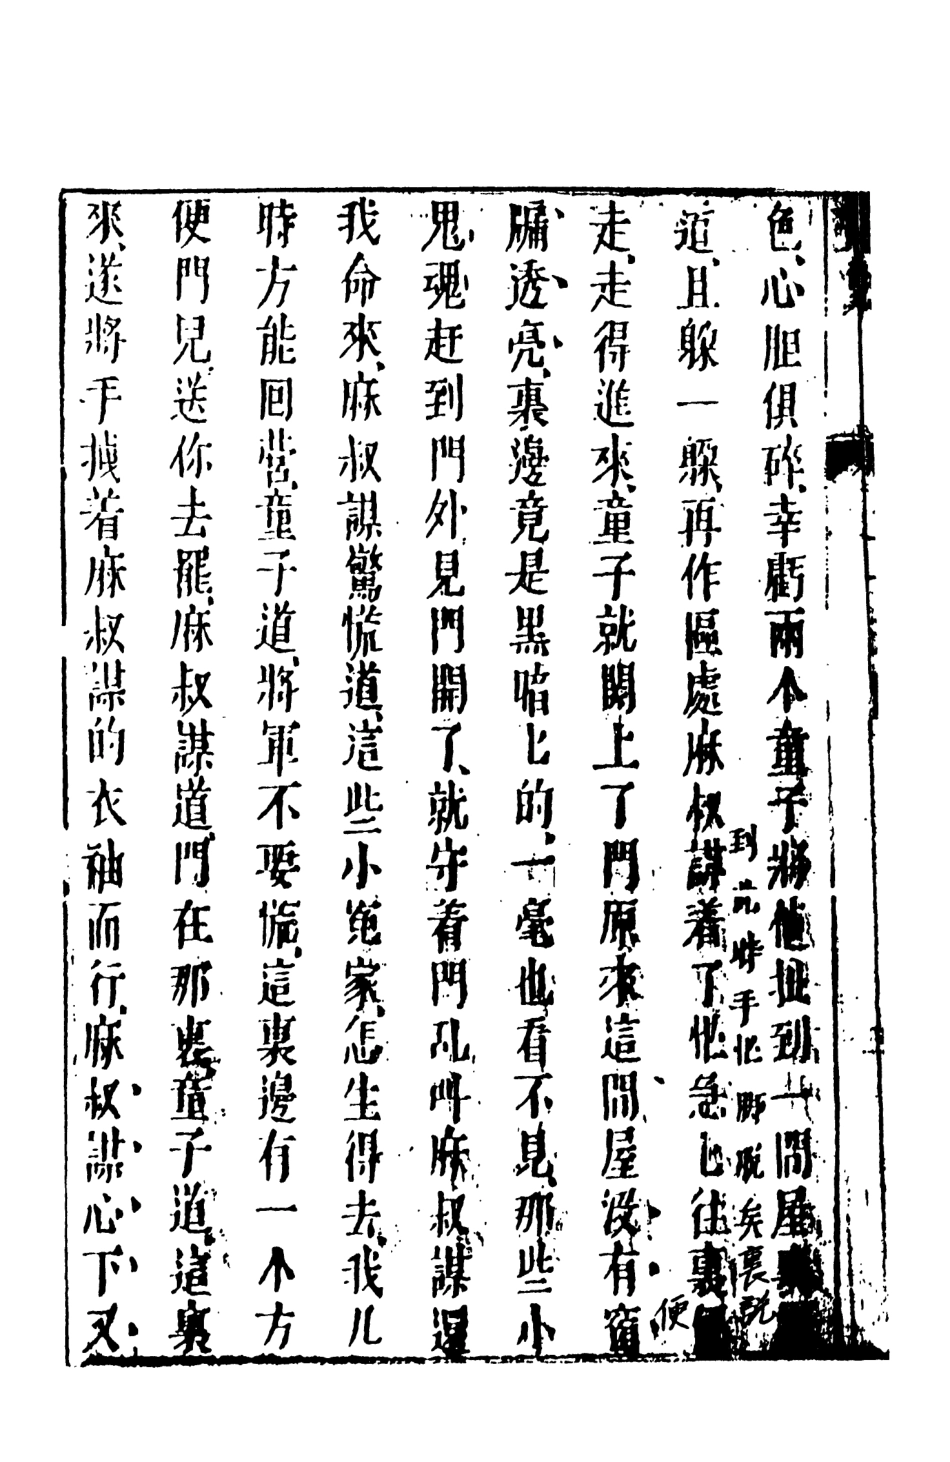 色、心胆俱碎、幸虧兩个童子將他扯到一間屋
道、且躲一躲、再作區處麻叔謀着了忙急匕往裏便
到此時手忙脚脱矣裏説
走、走得進來、童子就關上了門原來這間屋沒有窗
牖透亮、裏邊竟是黑暗匕的、一毫也看不見、那些小
鬼魂赶到門外見門關了、就守着門乱呌麻叔謀還
我命來、麻叔謀驚慌道、這些小冤家、怎生得去、我几
時方能回營、童子道、將軍不要慌、這裏邊有一个方
便門兒、送你去罷、麻叔謀道、門在那裏、童子道、這裏
來、遂將手攙着麻叔謀的衣袖而行、麻叔謀心下又